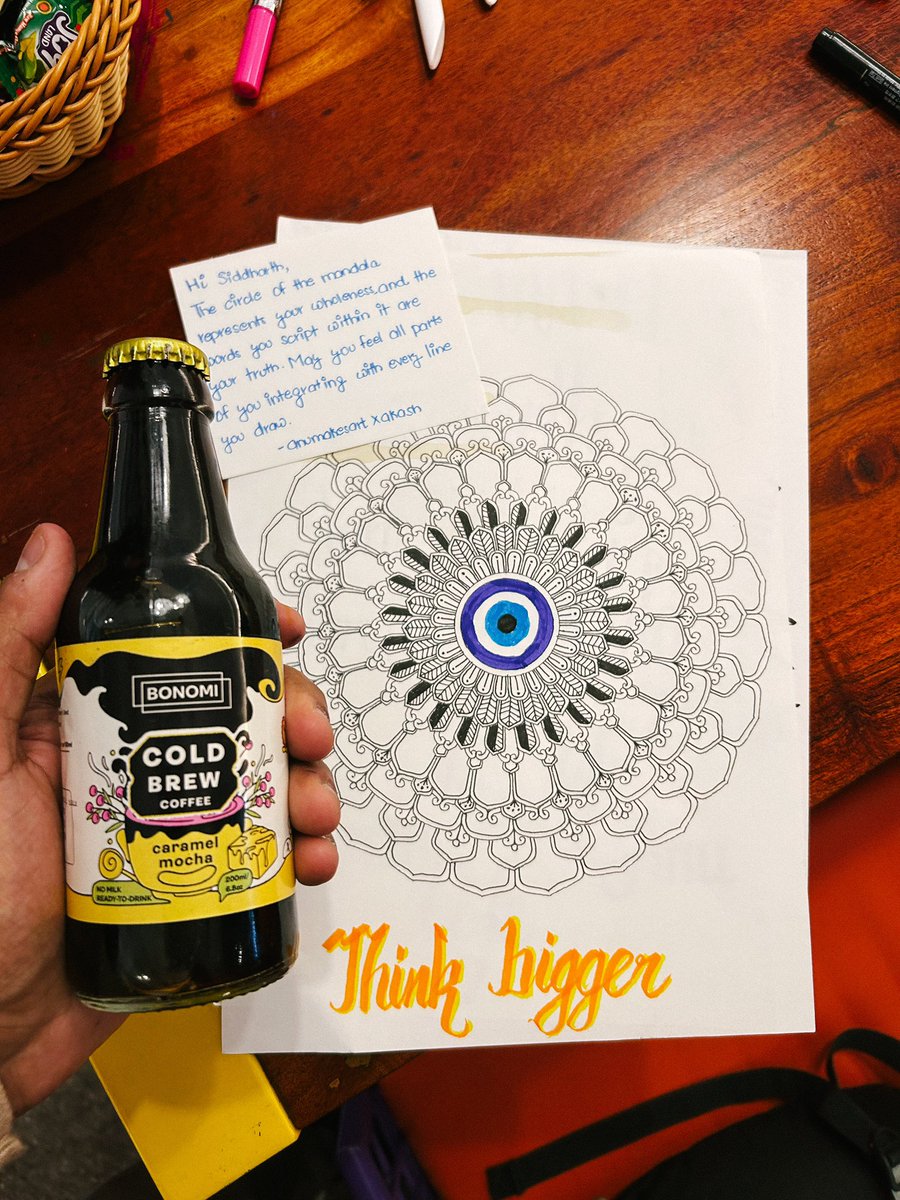 LAND
Hi Siddharth,
The circle of the mandala
represents your wholeness and the
words you script within it are
your truth. May you feel all parts
of you integrating with every line
you draw.
- anumakesart x akash
BONOMI
COLD
BREW
COFFEE
caramel
mocha
NO MILK
READY-TO-DRINK
200ml/
6.8oz
Think bigger